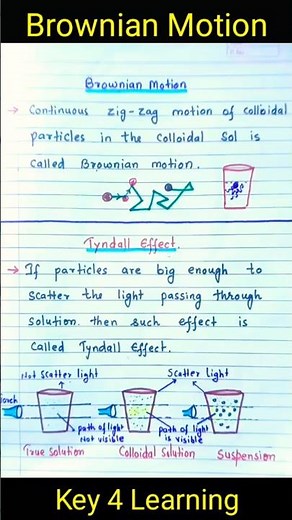 Brownian Motion
Brownian Motion
→ Continuous zig-zag motion of colloidal
particles in the colloidal sol is
called Brownian motion.
Tyndall Effect.
→ If particles are big enough to
scatter the light passing through
solution. then such effect is
called Tyndall Effect.
Not Scatter light
Scatter light
Torch
path of light
Not visible
path of light
is visible
True solution
Colloidal Solution
Suspension
Key 4 Learning